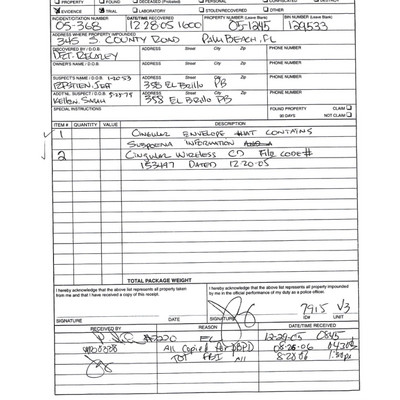 PROPERTY FOUND
EVIDENCE TRIAL LABORATORY STOLEN/RECOVERED OTHER
INCIDENT/CITATION NUMBER DATE/TIME RECEIVED PROPERTY NUMBER (Leave Blank) BIN NUMBER (Leave Blank)
05-368 12-28-05 1600 05-1245 129533
ADDRESS WHERE PROPERTY IMPOUNDED
345 S. COUNTY ROAD PALM BEACH, FL
DISCOVERED BY / D.O.B. ADDRESS Street City Zip PHONE NUMBER
DET. RECAREY
OWNER'S NAME / D.O.B. ADDRESS Street City Zip PHONE NUMBER
SUSPECT'S NAME / D.O.B. 1-20-53 ADDRESS Street City Zip PHONE NUMBER
EPSTEIN, JEFF 358 EL BRILLO PB
ADDRESS Street City Zip PHONE NUMBER
358 EL BRILLO PB
SPECIAL INSTRUCTIONS FOUND PROPERTY CLAIM
90 DAYS NOT CLAIM
ITEM # QUANTITY VALUE DESCRIPTION
1 CINGULAR ENVELOPE THAT CONTAINS
SUBPOENA INFORMATION
2 CINGULAR WIRELESS CD FILE CODE#
153447 DATED 12-20-05
TOTAL PACKAGE WEIGHT
I hereby acknowledge that the above list represents all property taken from me and that I have received a copy of this receipt.
I hereby acknowledge that the above list represents all property impounded by me in the official performance of my duty as a police officer.
7915 V3
SIGNATURE DATE SIGNATURE ID# UNIT
RECEIVED BY REASON DATE/TIME RECEIVED
12-29-05 0845
All Copied for PBPD
TOT FBI All